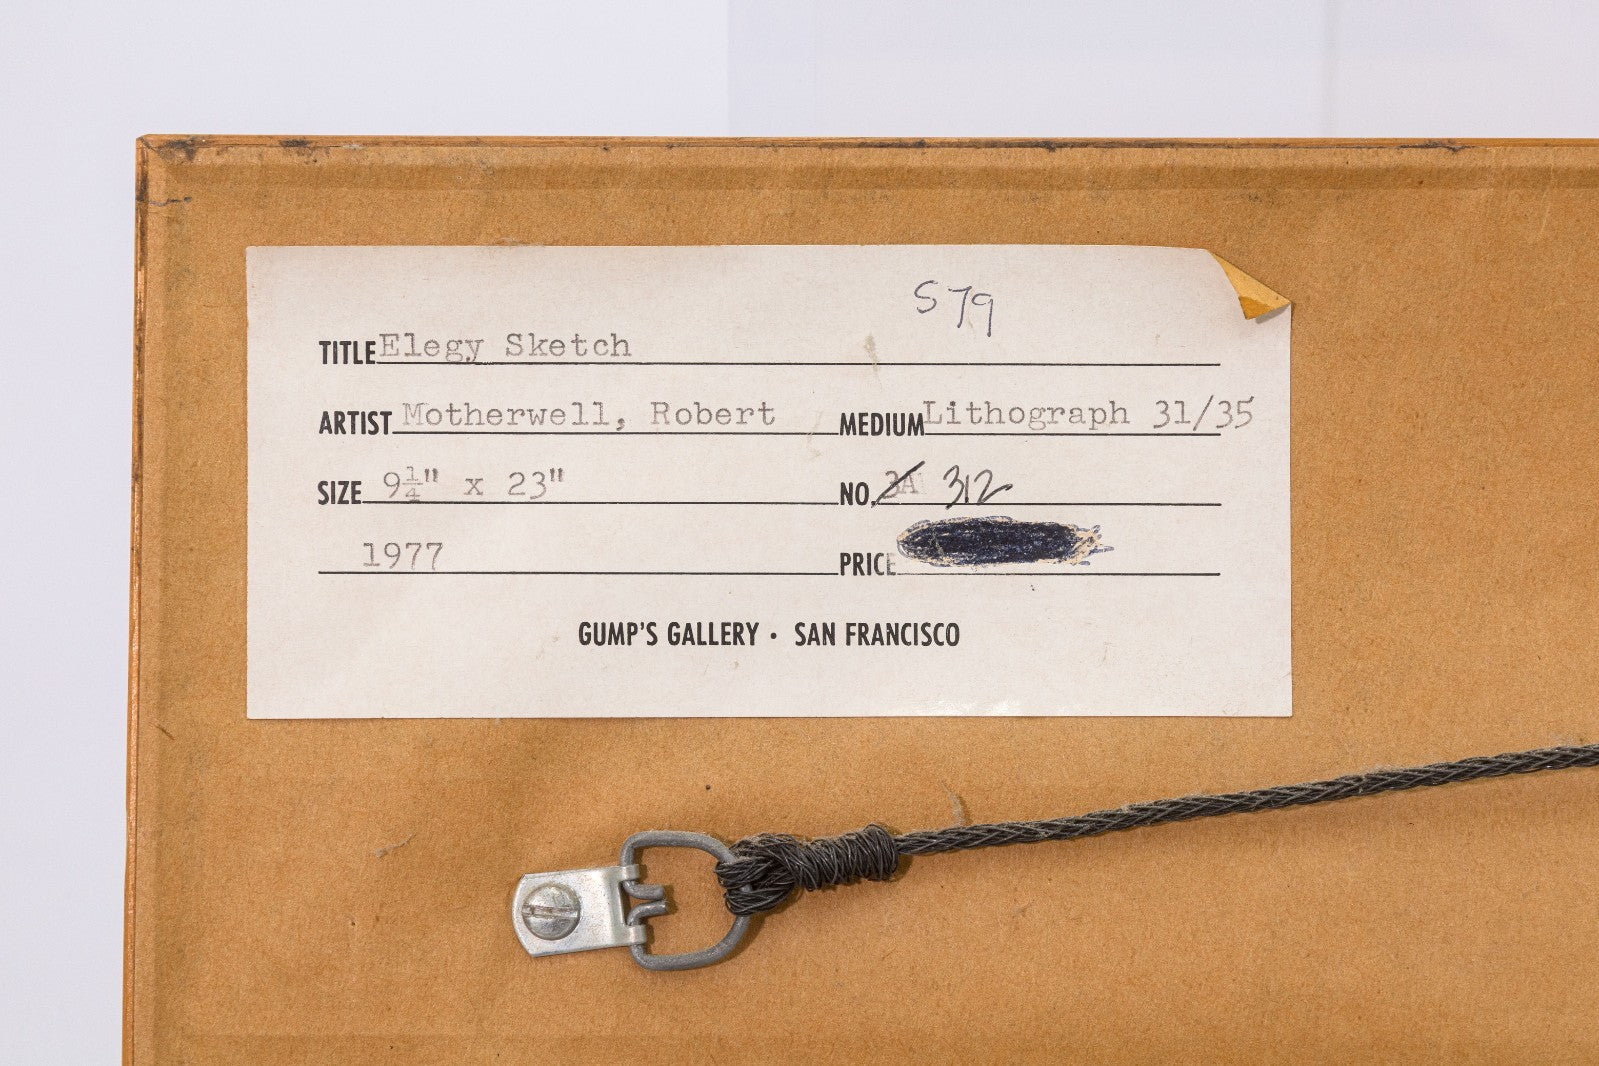 S79
TITLE Elegy Sketch
ARTIST Motherwell, Robert MEDIUM Lithograph 31/35
SIZE 9¼" x 23" NO. 3A 312
1977 PRICE
GUMP'S GALLERY · SAN FRANCISCO